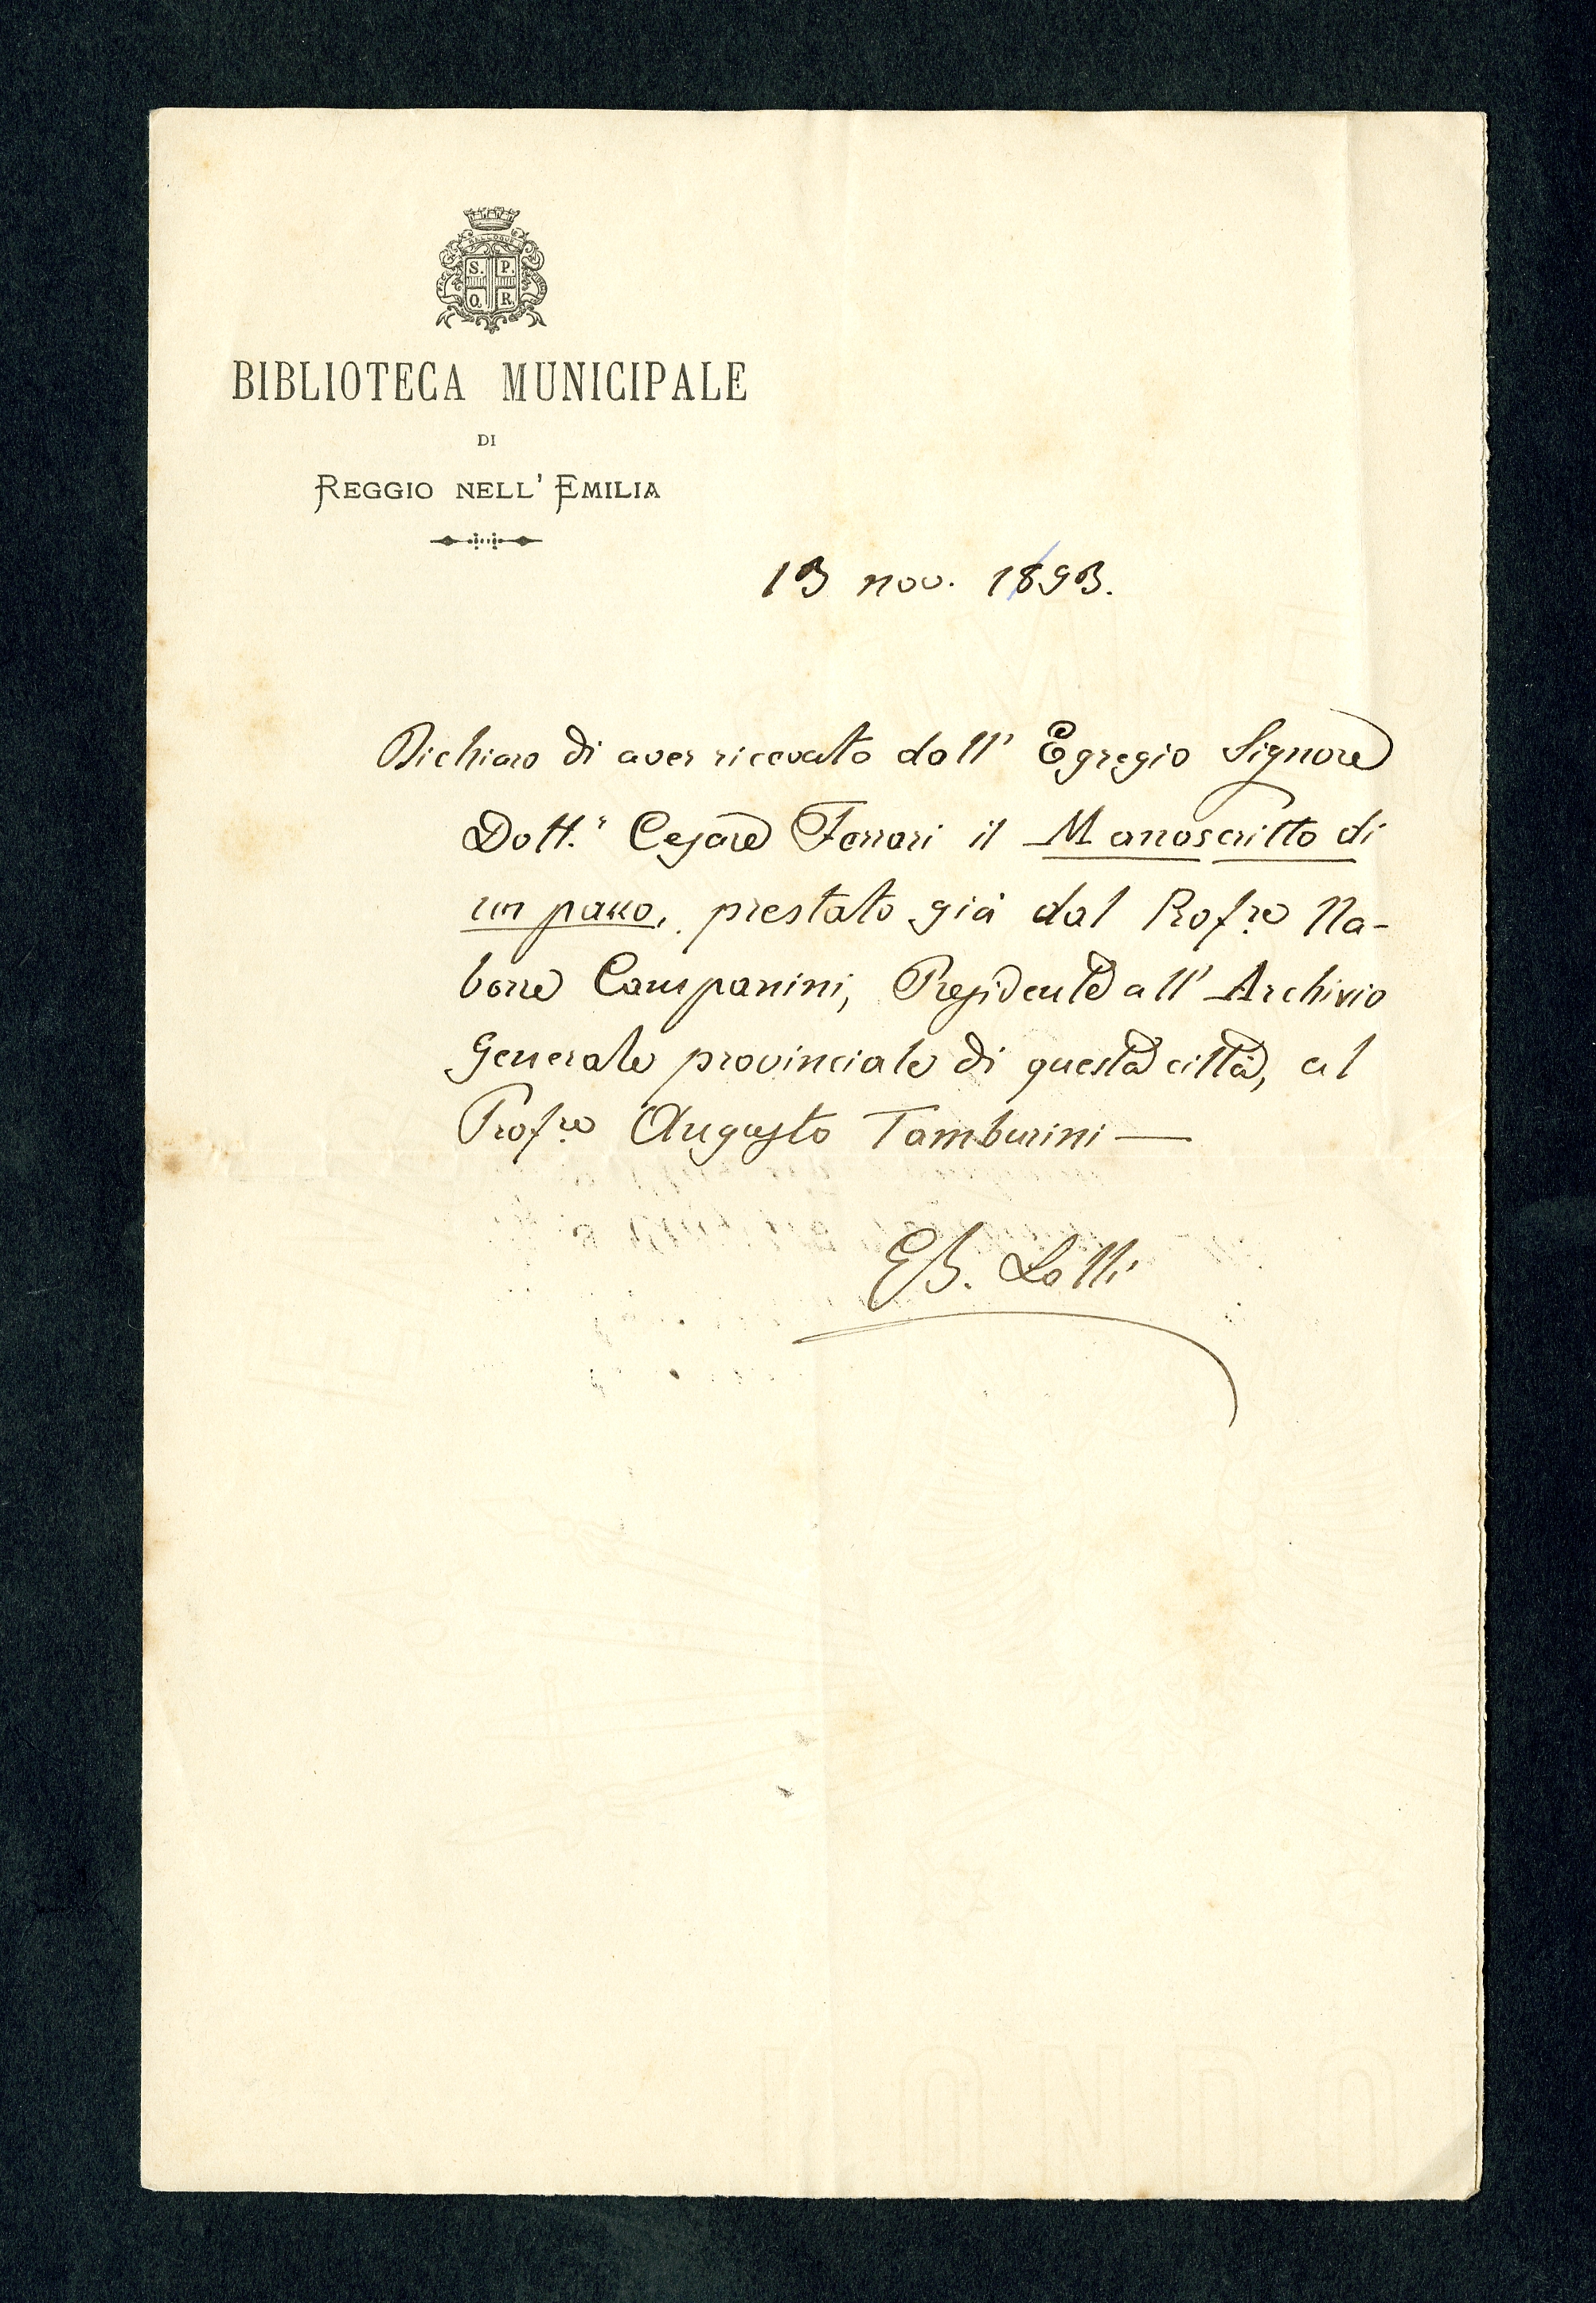 S. P.
Q. R.
BIBLIOTECA MUNICIPALE
DI
REGGIO NELL' EMILIA
13 nov. 1893.
Dichiaro di aver ricevuto dall' Egregio Signore
Dott.r Cesare Ferrari il Manoscritto di
un pazzo, prestato già dal Profre Na-
borre Campanini, Presidente all' Archivio
Generale provinciale di questa città, al
Profre Augusto Tamburini —
EB. Lolli